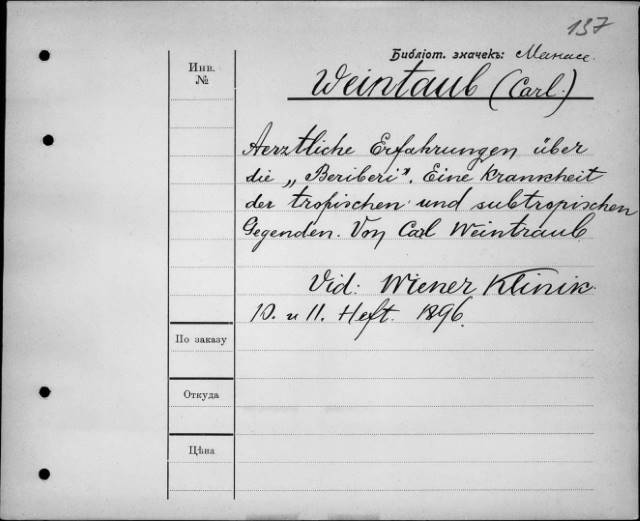 137
Библіот. значекъ: Манасс.
Инв. №
Weintaub (Carl.)
Aerztliche Erfahrungen über
die „Beriberi". Eine Krankheit
der tropischen und subtropischen
Gegenden. Von Carl Weintraub
Vid. Wiener Klinik.
10. u 11. Heft. 1896.
По заказу
Откуда
Цѣна